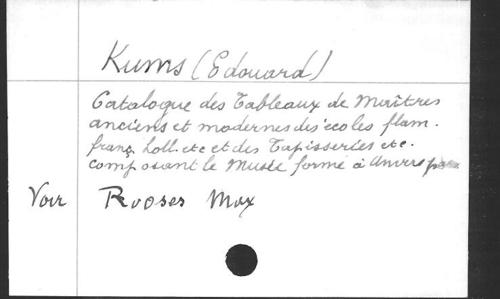 Kums (Edouard)
Catalogue des Tableaux de Maîtres
anciens et modernes des écoles flam.
franç. holl. etc et des Tapisseries etc.
composant le Musée formé à Anvers par
Voir Rooses Max